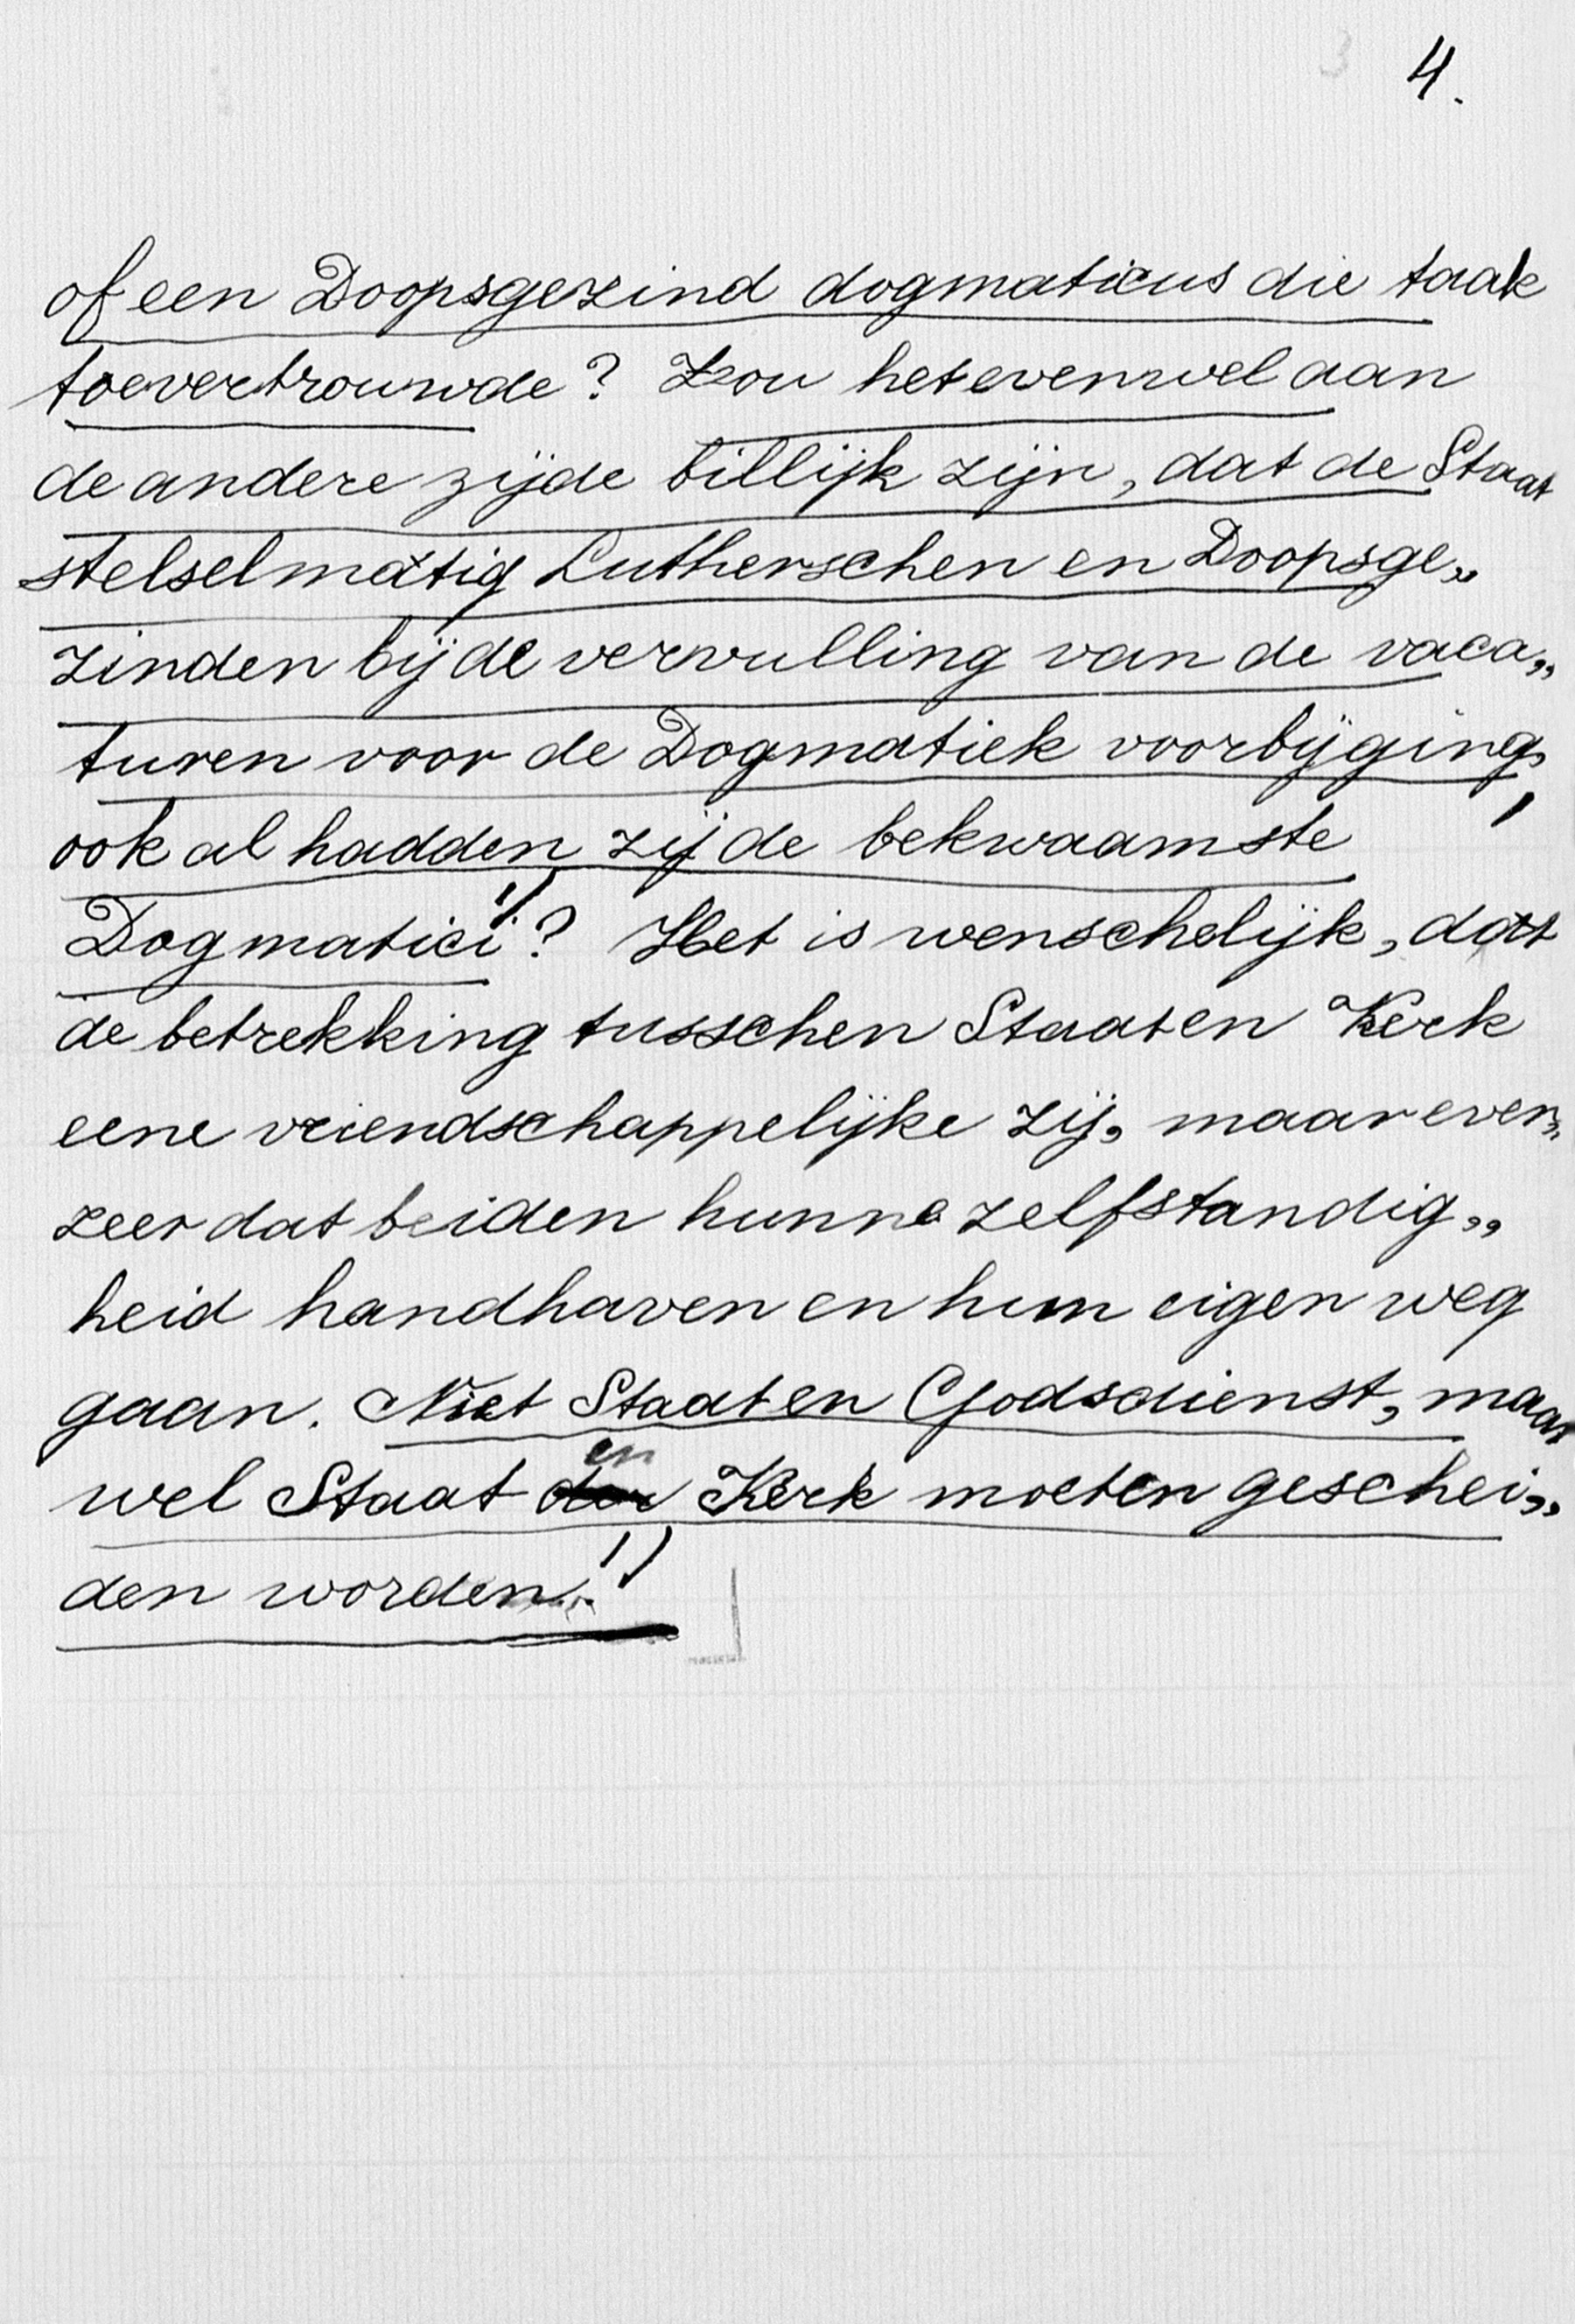 4.
of een Doopsgezind dogmaticus die taak
toevertrouwde? Zou het evenwel aan
de andere zijde billijk zijn, dat de Staat
stelselmatig Lutherschen en Doopsge„
zinden bij de vervulling van de vaca„
turen voor de Dogmatiek voorbijging,
ook al hadden zij de bekwaamste
Dogmatici? Het is wenschelijk, dat
de betrekking tusschen Staat en Kerk
eene vriendschappelijke zij, maar even„
zeer dat beiden hunne zelfstandig„
heid handhaven en hun eigen weg
gaan. Niet Staat en Godsdienst, maar
wel Staat en Kerk moeten geschei„
den worden.